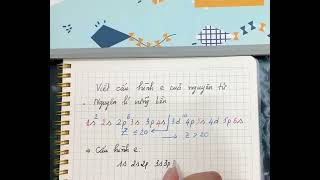 Viết cấu hình e của nguyên tử
- Nguyên lí vững bền
1s² 2s² 2p⁶ 3s 3p 4s 3d¹⁰ 4p 5s 4d 5p 6s
Z ≤ 20 Z > 20
→ Cấu hình e:
1s 2s 2p 3s 3p